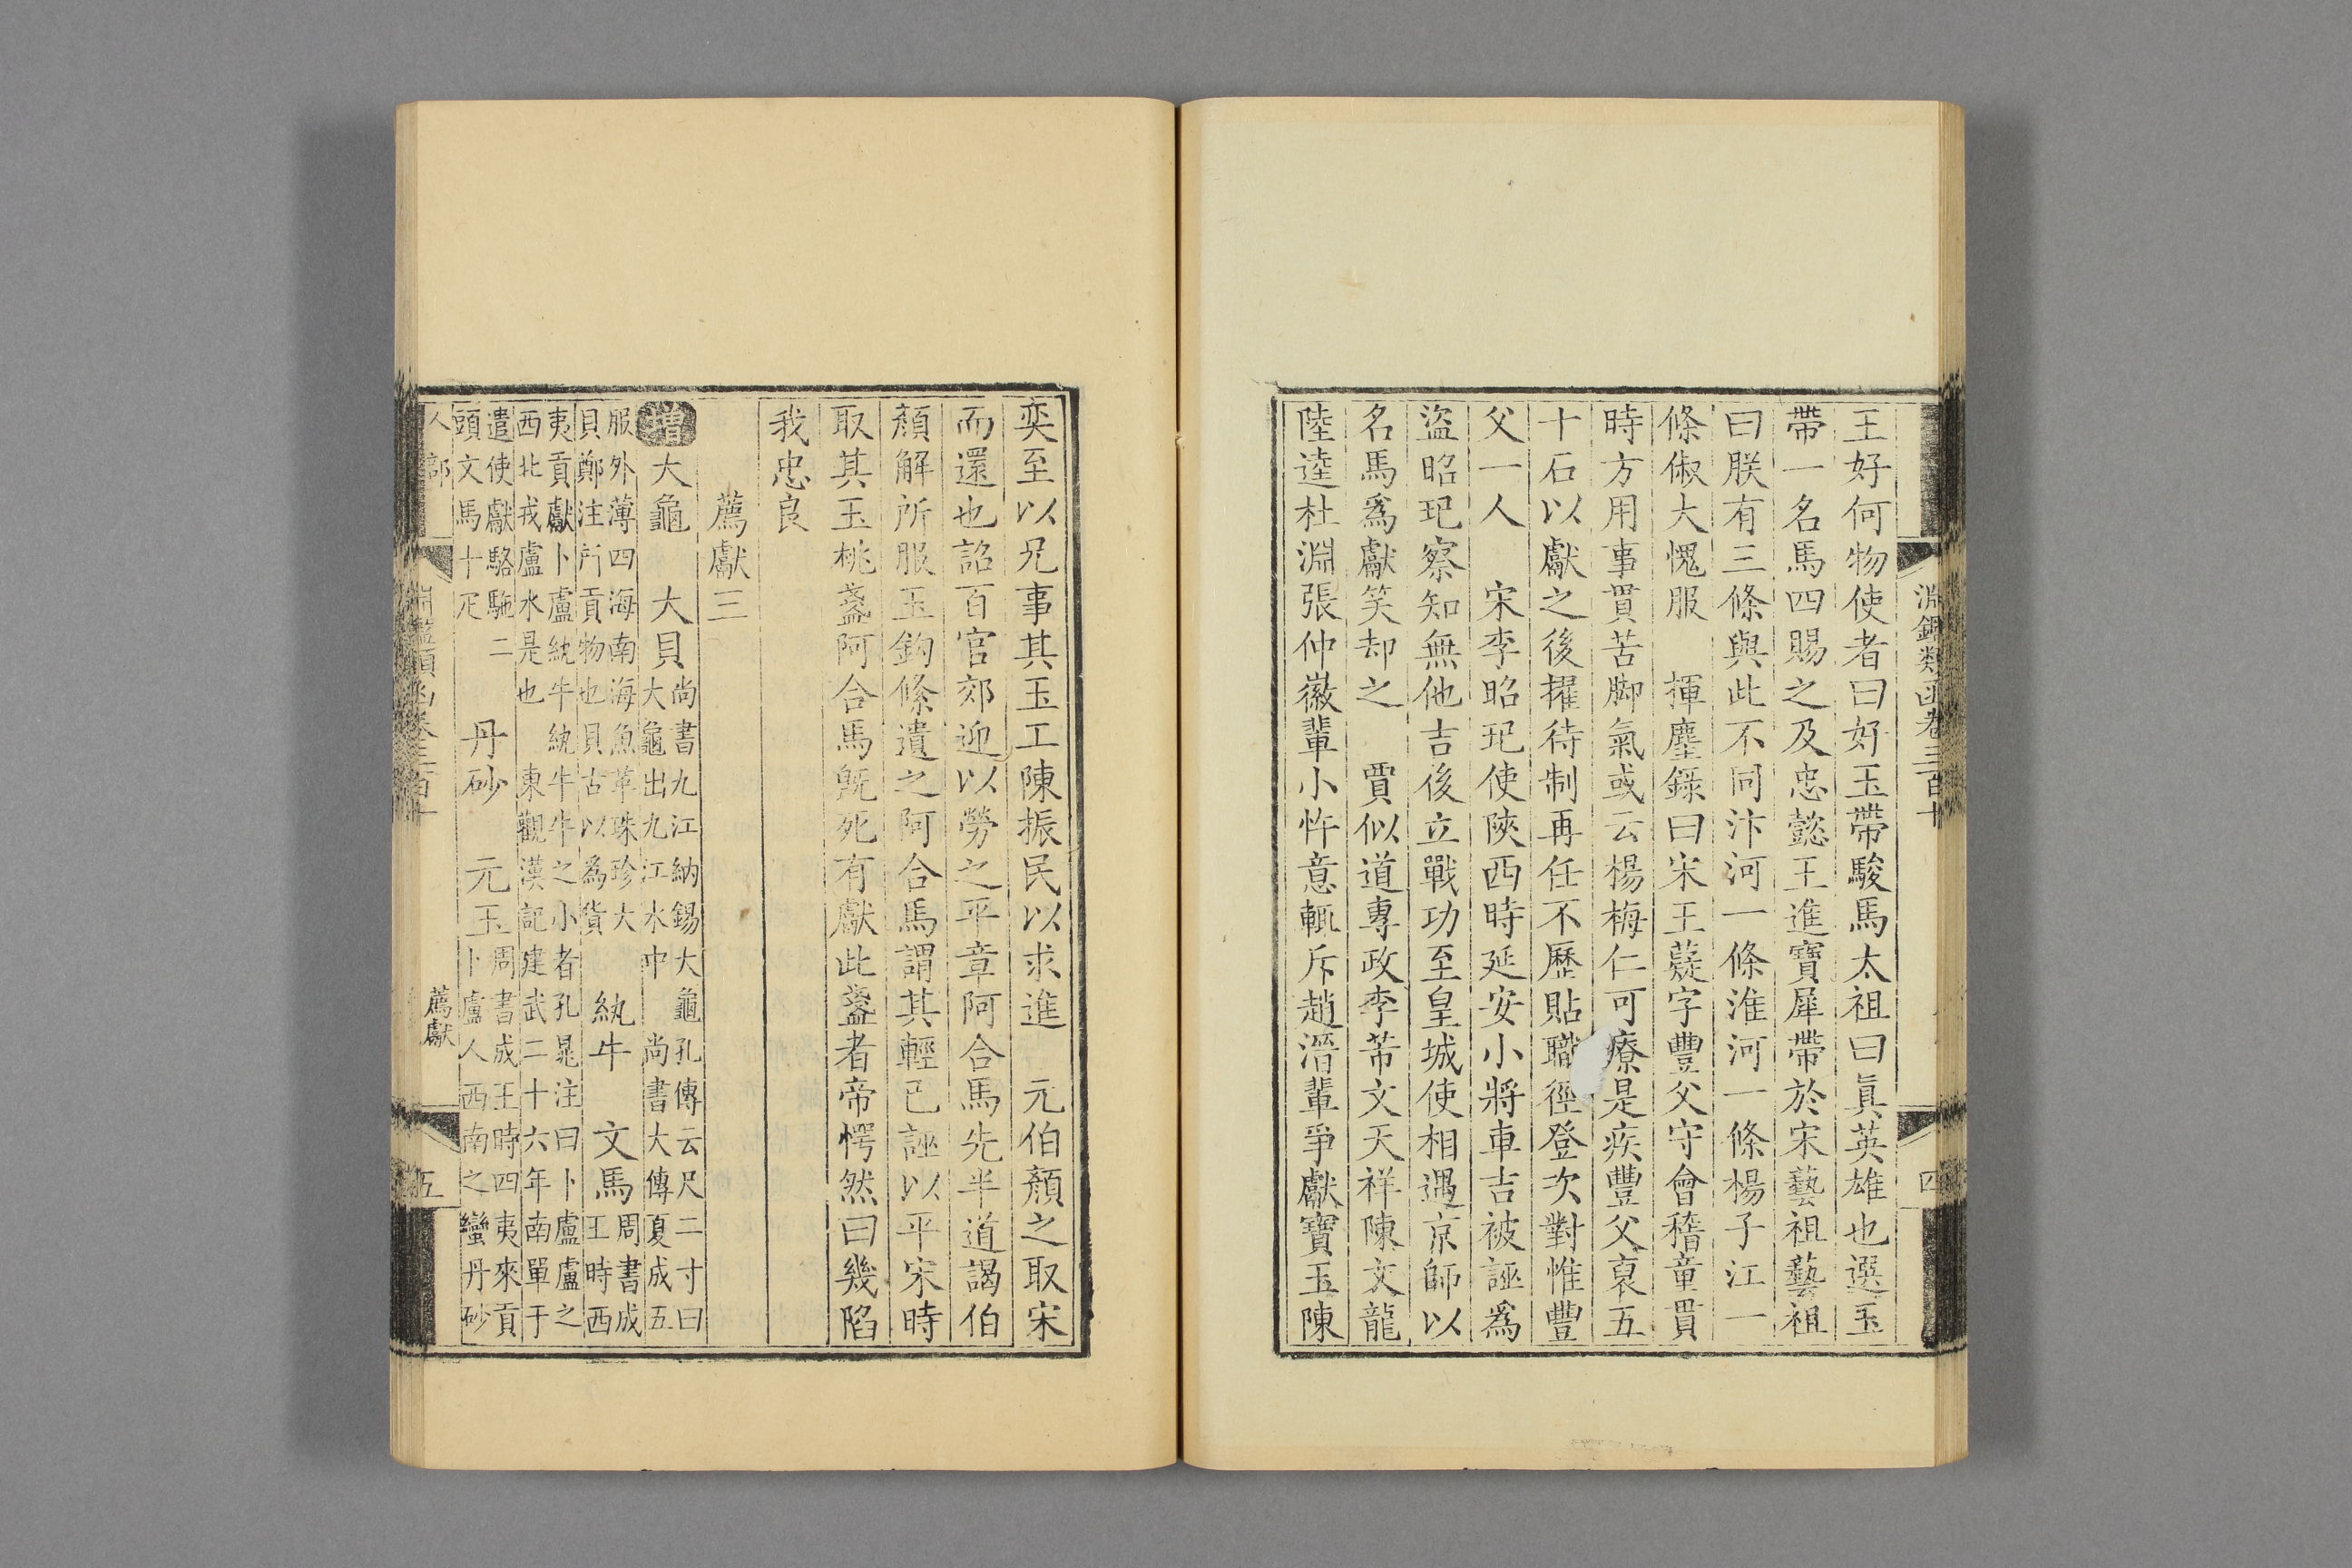 淵鑑類函卷三百十
四
王好何物使者曰好玉帶駿馬太祖曰眞英雄也選玉
帶一名馬四賜之及忠懿王進寶犀帶於宋藝祖藝祖
曰朕有三條與此不同汴河一條淮河一條楊子江一
條俶大愧服 揮麈錄曰宋王薿字豐父守會稽童貫
時方用事貫苦脚氣或云楊梅仁可療是疾豐父裒五
十石以獻之後擢待制再任不歷貼職徑登次對惟豐
父一人 宋李昭玘使陝西時延安小將車吉被誣爲
盜昭玘察知無他吉後立戰功至皇城使相遇京師以
名馬爲獻笑却之 賈似道專政李芾文天祥陳文龍
陸逵杜淵張仲徽輩小忤意輒斥趙溍輩爭獻寶玉陳
奕至以兄事其玉工陳振民以求進 元伯顏之取宋
而還也詔百官郊迎以勞之平章阿合馬先半道謁伯
顏解所服玉鉤絛遺之阿合馬謂其輕已誣以平宋時
取其玉桃盞阿合馬旣死有獻此盞者帝愕然曰幾陷
我忠良
薦獻三
增 大龜 大貝 尚書九江納錫大龜孔傳云尺二寸曰
大龜出九江水中 尚書大傳夏成五
服外薄四海南海魚革珠珍大
貝鄭注所貢物也貝古以爲貨 紈牛 文馬 周書成
王時西
夷貢獻卜盧紈牛紈牛牛之小者孔晁注曰卜盧盧之
西北戎盧水是也 東觀漢記建武二十六年南單于
遣使獻駱駞二
頭文馬十疋 丹砂 元玉 周書成王時四夷來貢
卜盧人西南之蠻丹砂
人部
淵鑑類函卷三百十
薦獻
五